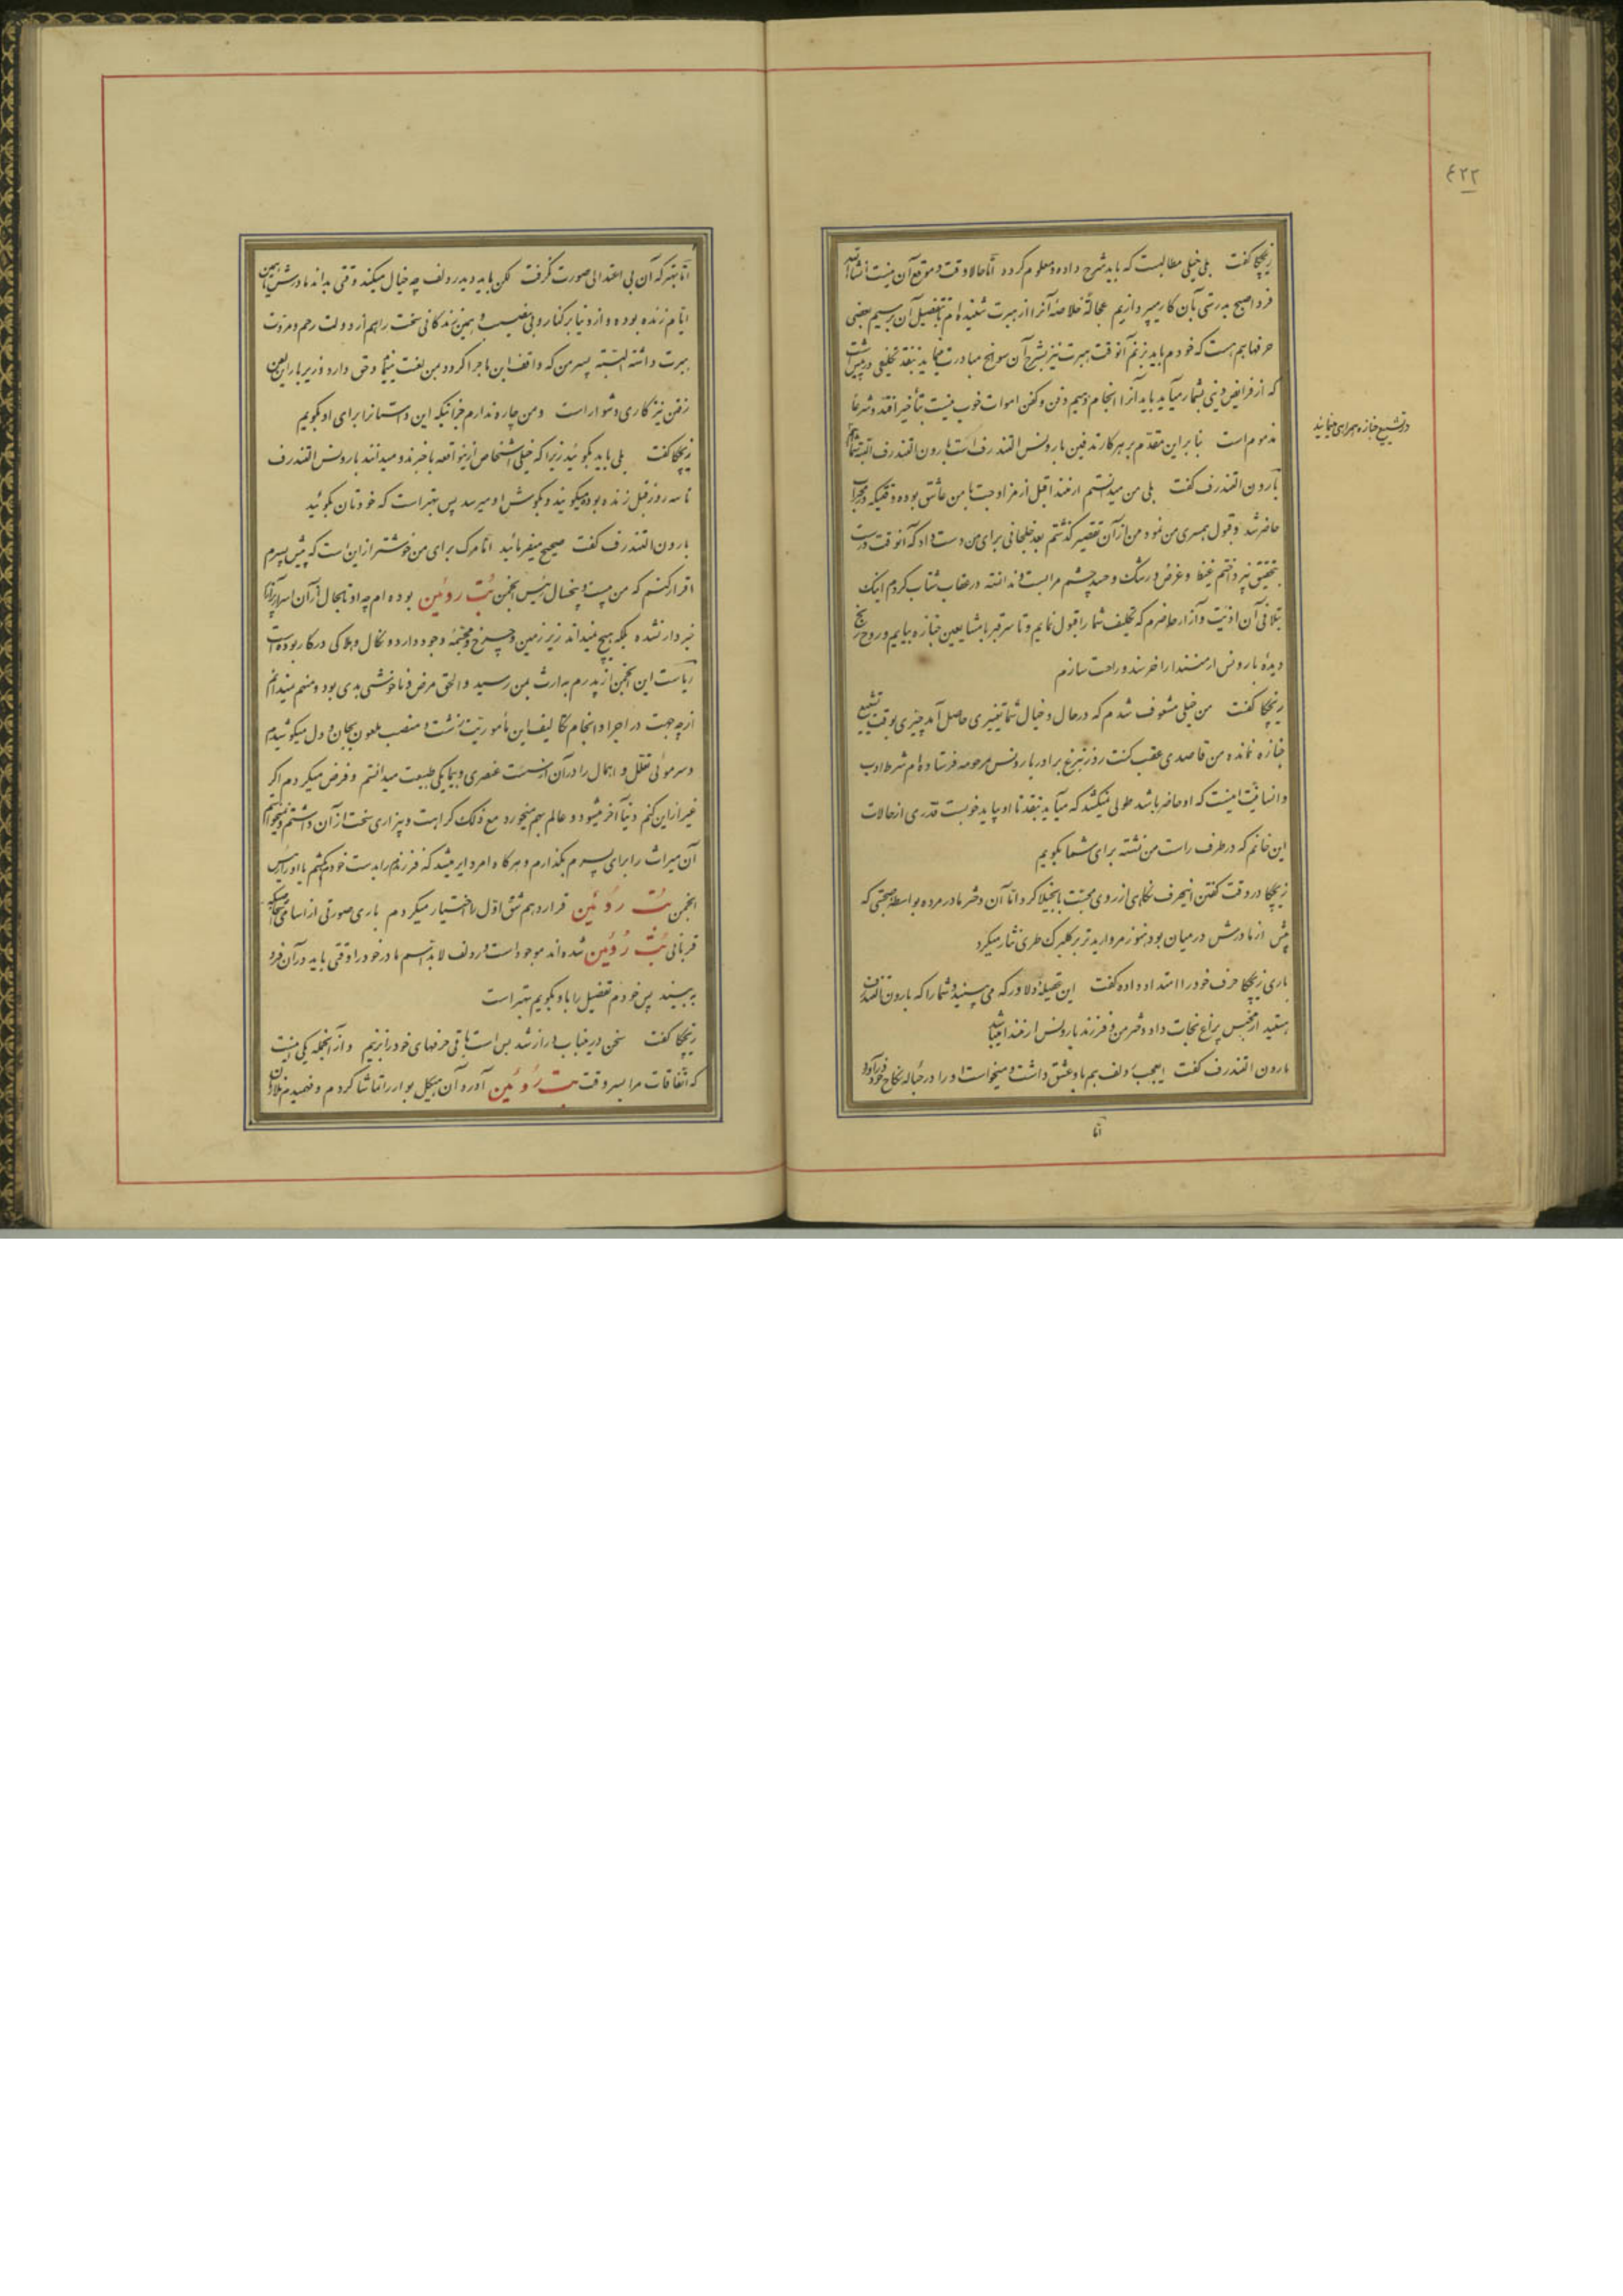 ۴۲۲
زیچکا گفت بلی خیلی مطالبست که باید شرح داده و معلوم گردد اما حالا وقت و موقع آن نیست انشاءالله
فردا صبح بدرستی بآن کار میپردازیم عجالةً خلاصهٔ آنرا از هبرت شنیده‌ام تا بتفصیل آن برسیم بعضی
حرفها هم هست که خودم باید بزنم آنوقت هبرت نیز بشرح آن سوانح مبادرت مینماید نقد تکلیفی در پیش است
که از فرایض دینی بشمار میآید باید آنرا انجام دهیم دفن و کفن اموات خوب نیست بتأخیر افتد و شرعاً
مذموم است بنا براین مقدم بر هر کار تدفین بارونس التندرف است بارون التندرف البته شما هم
در تشییع جنازه همراهی مینمایید
بارون التندرف گفت بلی من میدانستم ارمنندا قبل از مزاوجت با من عاشق بوده وقتیکه در محراب
حاضر شد و قبول همسری من نمود من از آن تقصیر گذشتم بعد خلجانی برای من دست داد که آنوقت درست
بتحقیق نپرداختم غیظ و غرض و رشک و حسد چشم مرا بست و ندانسته در عقاب شتاب کردم اینک
بتلافی آن اذیت و آزار حاضرم که تکلیف شما را قبول نمایم و تا سر قبر با مشایعین جنازه بیایم و روح رنج
دیدهٔ بارونس ارمنندا را خرسند و راحت سازم
زیچکا گفت من خیلی مشعوف شدم که در حال و خیال شما تغییری حاصل آمد چیزی بوقت تشییع
جنازه نمانده من قاصدی عقب کنت روزنبرغ برادر بارونس مرحومه فرستاده‌ام شرط ادب
و انسانیت اینست که او حاضر باشد طولی نمیکشد که میآید نقد تا او بیاید خوبست قدری از حالات
این خانم که در طرف راست من نشسته برای شما بگویم
زیچکا در وقت گفتن اینحرف نگاهی از روی محبت بآنجیلا کرد اما آن دختر مادر مرده بواسطه صحبتی که
پیش از مادرش در میان بود هنوز مروارید تر بر گلبرگ طری نثار میکرد
باری زیچکا حرف خود را امتداد داده گفت این عقیله و دلاور که می‌بینید و شما را که بارون التندرف
هستید از محبس پراغ نجات داد دختر من و فرزند بارونس ارمنندا میباشد
بارون التندرف گفت ایعجب رولف هم باو عشق داشت و میخواست او را در حباله نکاح خود درآورد
اما
اما بهتر که آن بی اعتدالی صورت نگرفت لکن باید دید رولف چه خیال میکند وقتی بداند مادرش تا همین
ایام زنده بوده و از دنیا برکنار و بی نصیب و همین زندگانی سخت را هم از دولت رحم و مروت
هبرت داشته البته پسر من که واقف این ماجرا گردد بمن لعنت مینماید و حق دارد و زیر بار این لعن
رفتن نیز کاری دشوار است و من چاره ندارم جز اینکه این داستانرا برای او بگویم
زیچکا گفت بلی باید بگوئید زیرا که خیلی اشخاص از اینواقعه باخبرند و میدانند بارونس التندرف
تا سه روز قبل زنده بوده میگویند و بگوش او میرسد پس بهتر است که خودتان بگوئید
بارون التندرف گفت صحیح میفرمائید اما مرگ برای من خوشتر از این است که پیش پسرم
اقرار کنم که من بیست و پنجسال رئیس انجمن بُت روئین بوده‌ام چه او تا بحال از آن اسرار ابداً
خبردار نشده بلکه هیچ نمیداند زیرزمین و چرخ و مجسمهٔ وجود دارد و نکال و هلاکی در کار بوده است
ریاست این انجمن از پدرم بارث بمن رسید و الحق مرض و ناخوشی بدی بود و منهم نمیدانم
از چه جهت در اجرا و انجام تکالیف این مأموریت زشت و منصب ملعون بجان و دل میکوشیدم
و سر موئی تعلل و اهمال را در آن از سست عنصری و بیباکی طبیعت میدانستم و فرض میکردم اگر
غیر از این کنم دنیا آخر میشود و عالم بهم میخورد مع ذلک کراهت و بیزاری سخت از آن داشتم و نمیخواستم
آن میراث را برای پسرم بگذارم و هرگاه امر دایر میشد که فرزندم را بدست خود بکشم یا او را رئیس
انجمن بُت روئین قرار دهم شق اول را اختیار میکردم باری صورتی از اسامی اشخاصیکه
قربانی بُت روئین شده‌اند موجود است و رولف لابد اسم مادر خود را وقتی باید در آن فرد
ببیند پس خودم تفصیل را باو بگویم بهتر است
زیچکا گفت سخن در اینباب دراز شد بس است باقی حرفهای خود را بزنیم و از آنجمله یکی اینست
که اتفاقات مرا بسر وقت بت روئین آورد آن هیکل بوار را تماشا کردم و فهمیدم